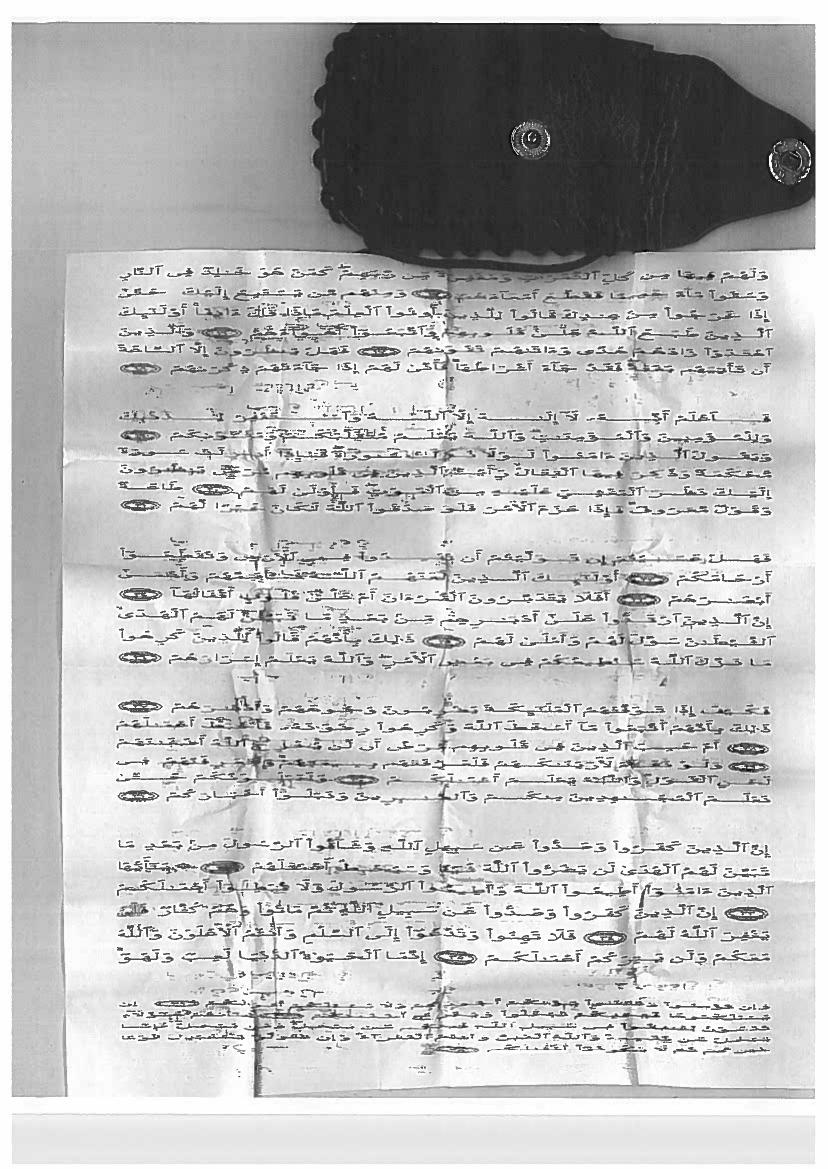 وَلَهُمْ فِيهَا مِن كُلِّ الثَّمَرَاتِ وَمَغْفِرَةٌ مِّن رَّبِّهِمْ كَمَنْ هُوَ خَالِدٌ فِى النَّارِ
وَسُقُوا مَآءً حَمِيمًا فَقَطَّعَ أَمْعَآءَهُمْ وَمِنْهُم مَّن يَسْتَمِعُ إِلَيْكَ حَتَّىٰ
إِذَا خَرَجُوا مِنْ عِندِكَ قَالُوا لِلَّذِينَ أُوتُوا الْعِلْمَ مَاذَا قَالَ ءَانِفًا أُولَٰئِكَ
الَّذِينَ طَبَعَ اللَّهُ عَلَىٰ قُلُوبِهِمْ وَاتَّبَعُوا أَهْوَآءَهُمْ وَالَّذِينَ
اهْتَدَوْا زَادَهُمْ هُدًى وَءَاتَىٰهُمْ تَقْوَىٰهُمْ فَهَلْ يَنظُرُونَ إِلَّا السَّاعَةَ
أَن تَأْتِيَهُم بَغْتَةً فَقَدْ جَآءَ أَشْرَاطُهَا فَأَنَّىٰ لَهُمْ إِذَا جَآءَتْهُمْ ذِكْرَىٰهُمْ
فَاعْلَمْ أَنَّهُ لَآ إِلَٰهَ إِلَّا اللَّهُ وَاسْتَغْفِرْ لِذَنبِكَ
وَلِلْمُؤْمِنِينَ وَالْمُؤْمِنَٰتِ وَاللَّهُ يَعْلَمُ مُتَقَلَّبَكُمْ وَمَثْوَىٰكُمْ
وَيَقُولُ الَّذِينَ ءَامَنُوا لَوْلَا نُزِّلَتْ سُورَةٌ فَإِذَآ أُنزِلَتْ سُورَةٌ
مُّحْكَمَةٌ وَذُكِرَ فِيهَا الْقِتَالُ رَأَيْتَ الَّذِينَ فِى قُلُوبِهِم مَّرَضٌ يَنظُرُونَ
إِلَيْكَ نَظَرَ الْمَغْشِىِّ عَلَيْهِ مِنَ الْمَوْتِ فَأَوْلَىٰ لَهُمْ طَاعَةٌ
وَقَوْلٌ مَّعْرُوفٌ فَإِذَا عَزَمَ الْأَمْرُ فَلَوْ صَدَقُوا اللَّهَ لَكَانَ خَيْرًا لَّهُمْ
فَهَلْ عَسَيْتُمْ إِن تَوَلَّيْتُمْ أَن تُفْسِدُوا فِى الْأَرْضِ وَتُقَطِّعُوا
أَرْحَامَكُمْ أُولَٰئِكَ الَّذِينَ لَعَنَهُمُ اللَّهُ فَأَصَمَّهُمْ وَأَعْمَىٰ
أَبْصَٰرَهُمْ أَفَلَا يَتَدَبَّرُونَ الْقُرْءَانَ أَمْ عَلَىٰ قُلُوبٍ أَقْفَالُهَا
إِنَّ الَّذِينَ ارْتَدُّوا عَلَىٰ أَدْبَٰرِهِم مِّن بَعْدِ مَا تَبَيَّنَ لَهُمُ الْهُدَى
الشَّيْطَٰنُ سَوَّلَ لَهُمْ وَأَمْلَىٰ لَهُمْ ذَٰلِكَ بِأَنَّهُمْ قَالُوا لِلَّذِينَ كَرِهُوا
مَا نَزَّلَ اللَّهُ سَنُطِيعُكُمْ فِى بَعْضِ الْأَمْرِ وَاللَّهُ يَعْلَمُ إِسْرَارَهُمْ
فَكَيْفَ إِذَا تَوَفَّتْهُمُ الْمَلَٰئِكَةُ يَضْرِبُونَ وُجُوهَهُمْ وَأَدْبَٰرَهُمْ
ذَٰلِكَ بِأَنَّهُمُ اتَّبَعُوا مَآ أَسْخَطَ اللَّهَ وَكَرِهُوا رِضْوَٰنَهُ فَأَحْبَطَ أَعْمَٰلَهُمْ
أَمْ حَسِبَ الَّذِينَ فِى قُلُوبِهِم مَّرَضٌ أَن لَّن يُخْرِجَ اللَّهُ أَضْغَٰنَهُمْ
وَلَوْ نَشَآءُ لَأَرَيْنَٰكَهُمْ فَلَعَرَفْتَهُم بِسِيمَٰهُمْ وَلَتَعْرِفَنَّهُمْ فِى
لَحْنِ الْقَوْلِ وَاللَّهُ يَعْلَمُ أَعْمَٰلَكُمْ وَلَنَبْلُوَنَّكُمْ حَتَّىٰ
نَعْلَمَ الْمُجَٰهِدِينَ مِنكُمْ وَالصَّٰبِرِينَ وَنَبْلُوَا أَخْبَارَكُمْ
إِنَّ الَّذِينَ كَفَرُوا وَصَدُّوا عَن سَبِيلِ اللَّهِ وَشَآقُّوا الرَّسُولَ مِن بَعْدِ مَا
تَبَيَّنَ لَهُمُ الْهُدَىٰ لَن يَضُرُّوا اللَّهَ شَيْـًٔا وَسَيُحْبِطُ أَعْمَٰلَهُمْ يَٰٓأَيُّهَا
الَّذِينَ ءَامَنُوا أَطِيعُوا اللَّهَ وَأَطِيعُوا الرَّسُولَ وَلَا تُبْطِلُوا أَعْمَٰلَكُمْ
إِنَّ الَّذِينَ كَفَرُوا وَصَدُّوا عَن سَبِيلِ اللَّهِ ثُمَّ مَاتُوا وَهُمْ كُفَّارٌ فَلَن
يَغْفِرَ اللَّهُ لَهُمْ فَلَا تَهِنُوا وَتَدْعُوا إِلَى السَّلْمِ وَأَنتُمُ الْأَعْلَوْنَ وَاللَّهُ
مَعَكُمْ وَلَن يَتِرَكُمْ أَعْمَٰلَكُمْ إِنَّمَا الْحَيَوٰةُ الدُّنْيَا لَعِبٌ وَلَهْوٌ